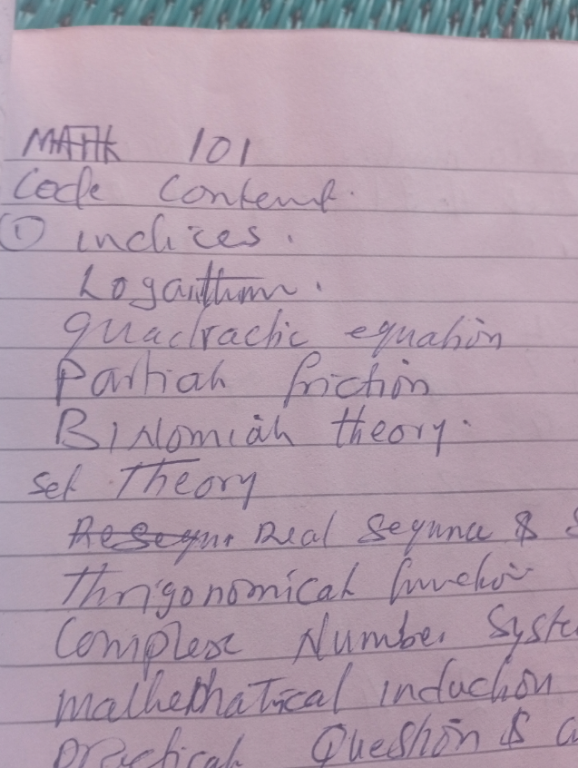 MATH 101
Code Content.
① indices.
Logarithm.
quadractic equation
Partial friction
BiNomial theory.
Set Theory
Real Sequnce &
Thrigonomical function
Complex Number Syste
mathethatical induction
practical Question &